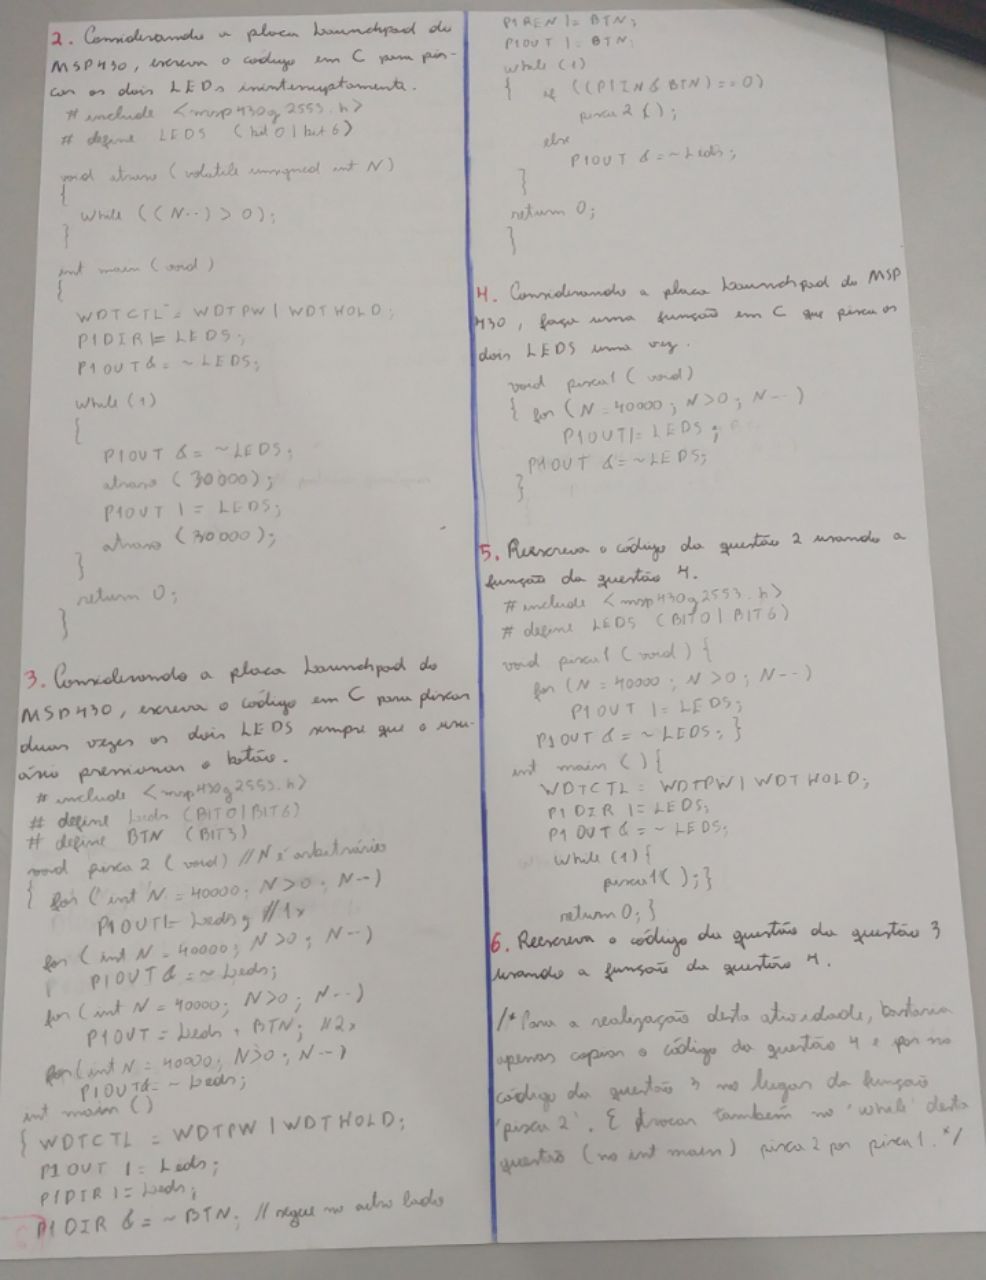 2. Considerando a placa Launchpad do
MSP430, escreva o código em C para pis-
car os dois LEDs ininterruptamente.
# include <msp430g2553.h>
# define LEDS (bit0|bit6)
void atraso (volatile unsigned int N)
{
while ((N--) > 0);
}
int main (void)
{
WDTCTL = WDTPW | WDTHOLD;
P1DIR |= LEDS;
P1OUT &= ~LEDS;
while (1)
{
P1OUT &= ~LEDS;
atraso (30000);
P1OUT |= LEDS;
atraso (30000);
}
return 0;
}
3. Considerando a placa Launchpad do
MSP430, escreva o código em C para piscar
duas vezes os dois LEDS sempre que o usu-
ário pressionar o botão.
# include <msp430g2553.h>
# define Leds (BIT0|BIT6)
# define BTN (BIT3)
void pisca2 (void) // N é arbitrário
{ for (int N = 40000; N>0; N--)
P1OUT |= Leds; //1x
for (int N = 40000; N>0; N--)
P1OUT &= ~Leds;
for (int N = 40000; N>0; N--)
P1OUT = Leds + BTN; //2x
for (int N = 40000; N>0; N--)
P1OUT &= ~Leds;
int main ()
{ WDTCTL = WDTPW | WDTHOLD;
P1OUT |= Leds;
P1DIR |= Leds;
P1DIR &= ~BTN; // segue no outro lado
P1REN |= BTN;
P1OUT |= BTN;
while (1)
{ if ((P1IN & BTN) == 0)
pisca2 ();
else
P1OUT &= ~Leds;
}
return 0;
}
4. Considerando a placa Launchpad do MSP
430, faça uma função em C que pisca os
dois LEDS uma vez.
void pisca1 (void)
{ for (N = 40000; N>0; N--)
P1OUT |= LEDS;
P1OUT &= ~LEDS;
}
5. Reescreva o código da questão 2 usando a
função da questão 4.
# include <msp430g2553.h>
# define LEDS (BIT0|BIT6)
void pisca1 (void) {
for (N = 40000; N>0; N--)
P1OUT |= LEDS;
P1OUT &= ~LEDS; }
int main () {
WDTCTL = WDTPW | WDTHOLD;
P1DIR |= LEDS;
P1OUT &= ~LEDS;
while (1) {
pisca1 (); }
return 0; }
6. Reescreva o código da questão da questão 3
usando a função da questão 4.
/* Para a realização desta atividade, bastaria
apenas copiar o código da questão 4 e por no
código da questão 3 no lugar da função
'pisca2'. E trocar também no 'while' desta
questão (no int main) pisca2 por pisca1. */